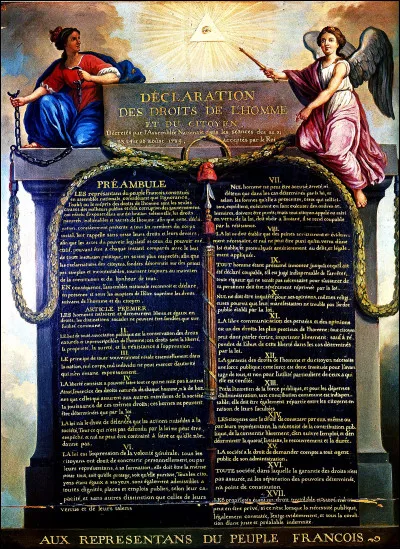 DÉCLARATION
DES DROITS DE L'HOMME
ET DU CITOYEN,
Décretés par l'Assemblée Nationale dans les séances des 20, 21
23, 24 et 26 août 1789, acceptés par le Roi
PRÉAMBULE
LES représentans du peuple François constitués
en assemblée nationale, considérant que l'ignorance,
l'oubli ou le mépris des droits de l'homme sont les seules
causes des malheurs publics et de la corruption des gouvernemens,
ont résolu d'exposer dans une déclaration solemnelle, les droits
naturels, inaliénables et sacrés de l'homme, afin que cette déclaration,
constamment présente à tous les membres du corps
social, leur rappelle sans cesse leurs droits et leurs devoirs; afin
que les actes du pouvoir législatif et ceux du pouvoir exécutif,
pouvant être à chaque instant comparés avec le but
de toute institution politique, en soient plus respectés; afin que
les réclamations des citoyens, fondées désormais sur des principes
simples et incontestables, tournent toujours au maintien
de la constitution et du bonheur de tous.
EN conséquence, l'assemblée nationale reconnoît et déclare
en présence et sous les auspices de l'Être suprême les droits
suivans de l'homme et du citoyen.
ARTICLE PREMIER
LES hommes naissent et demeurent libres et égaux en
droits; les distinctions sociales ne peuvent être fondées que sur
l'utilité commune.
II.
LE but de toute association politique est la conservation des droits
naturels et imprescriptibles de l'homme; ces droits sont la liberté,
la propriété, la sureté, et la résistance à l'oppression.
III.
LE principe de toute souveraineté réside essentiellement dans
la nation, nul corps, nul individu ne peut exercer d'autorité
qui n'en émane expressément.
IV.
LA liberté consiste à pouvoir faire tout ce qui ne nuit pas à autrui
Ainsi, l'exercice des droits naturels de chaque homme, n'a de bornes
que celles qui assurent aux autres membres de la société
la jouissance de ces mêmes droits; ces bornes ne peuvent
être déterminées que par la loi
V.
LA loi n'a le droit de défendre que les actions nuisibles à la
société. Tout ce qui n'est pas défendu par la loi ne peut être
empêché, et nul ne peut être contraint à faire ce qu'elle n'ordonne
pas.
VI.
LA loi est l'expression de la volonté générale; tous les
citoyens ont droit de concourir personnellement, ou par
leurs représentans, à sa formation; elle doit être la même
pour tous, soit qu'elle protege, soit qu'elle punisse. Tous les citoyens
étant égaux à ses yeux, sont également admissibles à
toutes dignités, places et emplois publics, selon leur capacité,
et sans autres distinctions que celles de leurs
vertus et de leurs talens.
VII.
NUL homme ne peut être accusé, arrêté ni
détenu que dans les cas déterminés par la loi, et
selon les formes qu'elle a prescrites, ceux qui sollicitent,
expédient, exécutent ou font exécuter des ordres arbitraires,
doivent être punis; mais tout citoyen appelé ou saisi
en vertu de la loi, doit obéir à l'instant, il se rend coupable
par la résistance.
VIII.
LA loi ne doit établir que des peines strictement et évidemment
nécessaires, et nul ne peut être puni qu'en vertu d'une
loi établie et promulguée antérieurement au délit, et légalement
appliquée.
IX.
TOUT homme étant présumé innocent jusqu'à ce qu'il ait
été déclaré coupable, s'il est jugé indispensable de l'arrêter,
toute rigueur qui ne seroit pas nécessaire pour s'assurer de
sa personne doit être sévèrement réprimée par la loi.
X.
NUL ne doit être inquiété pour ses opinions, mêmes religieuses
pourvu que leur manifestation ne trouble pas l'ordre
public établi par la loi.
XI.
LA libre communication des pensées et des opinions
est un des droits les plus précieux de l'homme; tout citoyen
peut donc parler, écrire, imprimer librement, sauf à répondre
de l'abus de cette liberté dans les cas déterminés
par la loi.
XII.
LA garantie des droits de l'homme et du citoyen nécessite
une force publique; cette force est donc instituée pour l'avantage
de tous, et non pour l'utilité particulière de ceux à qui
elle est confiée.
XIII.
POUR l'entretien de la force publique, et pour les dépenses
d'administration, une contribution commune est indispensable;
elle doit être également répartie entre les citoyens en
raison de leurs facultés.
XIV.
LES citoyens ont le droit de constater par eux-mêmes ou
par leurs représentans, la nécessité de la contribution publique,
de la consentir librement, d'en suivre l'emploi, et d'en
déterminer la quotité, l'assiette, le recouvrement et la durée.
XV.
LA société a le droit de demander compte à tout agent
public de son administration.
XVI.
TOUTE société, dans laquelle la garantie des droits n'est
pas assurée, ni la séparation des pouvoirs déterminée,
n'a point de constitution.
XVII.
LES propriétés étant un droit inviolable et sacré, nul ne
peut en être privé, si ce n'est lorsque la nécessité publique,
légalement constatée, l'exige évidemment, et sous la condition
d'une juste et préalable indemnité.
AUX REPRESENTANS DU PEUPLE FRANCOIS